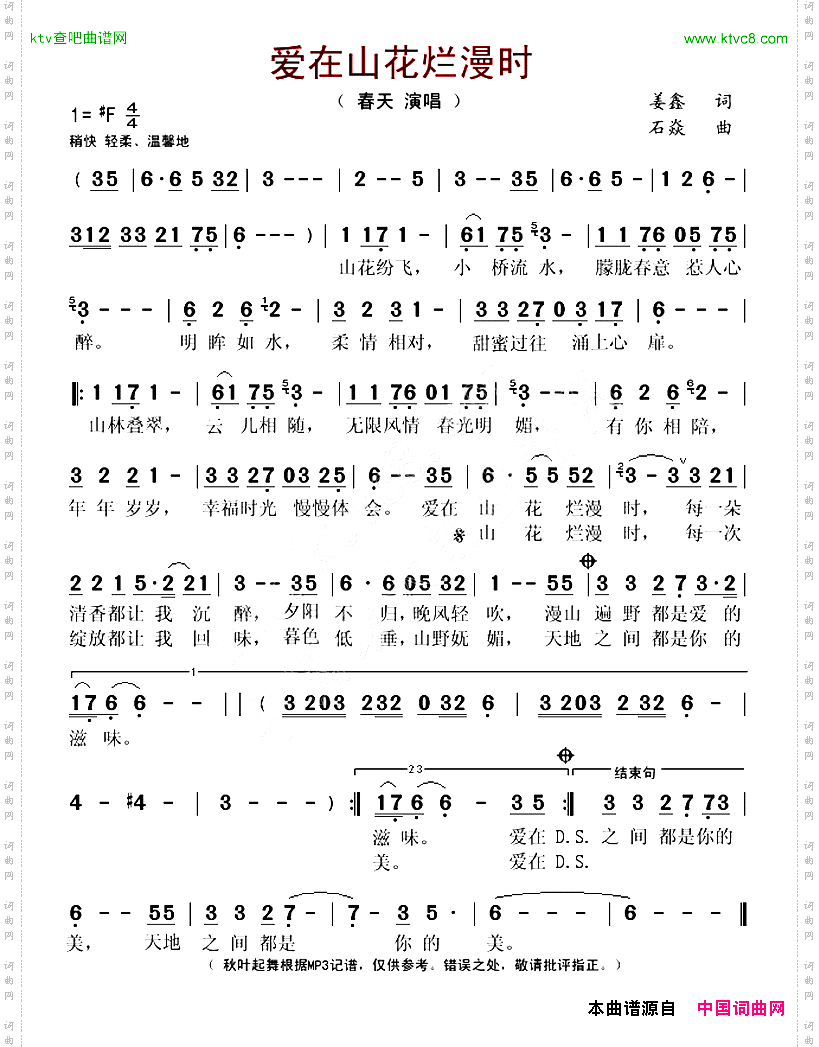 ktv查吧曲谱网
www.ktvc8.com
爱在山花烂漫时
（ 春天 演唱 ）
姜鑫 词
1= #F 4/4
石焱 曲
稍快 轻柔、温馨地
( 35 | 6·6 5 32 | 3 - - - | 2 - - 5 | 3 - - 35 | 6·6 5 32 | 1 2 6 - |
312 33 21 75 | 6 - - - ) | 1 17 1 - | 61 75 5 3 - | 1 1 76 05 75 |
山花纷飞， 小 桥流 水， 朦胧春意 惹人心
5 3 - - - | 6 2 6 1 2 - | 3 2 31 - | 3 327 0 3 17 | 6 - - - |
醉。 明 眸 如 水， 柔 情 相对， 甜蜜过往 涌上心 扉。
||: 1 17 1 - | 61 75 5 3 - | 1 1 76 01 75 | 5 3 - - - | 6 2 6 6 2 - |
山林叠翠， 云 儿相 随， 无限风情 春光明 媚， 有 你 相 陪，
3 2 21 - | 3 327 03 25 | 6 - - 35 | 6· 5 5 52 | 2 3 - 3 v 3 21 |
年 年 岁岁， 幸福时光 慢慢体 会。 爱在 山 花 烂漫 时， 每一朵
山 花 烂漫 时， 每一次
2 2 1 5·2 21 | 3 - - 35 | 6· 6 05 32 | 1 - - 55 | 3 3 2 7 3·2 |
清香都让 我 沉 醉， 夕阳 不 归，晚风轻 吹， 漫山 遍 野 都是 爱 的
绽放都让 我 回 味， 暮色 低 垂，山野妩 媚， 天地 之 间 都是 你 的
1
17 6 6 - - | ( 3 203 232 0 32 6 | 3 203 232 32 6 - |
滋 味。
23
结束句
4 - #4 - | 3 - - ) :|| 17 6 6 - 35 :|| 3 3 2 7 73 |
滋 味。 爱在 D.S. 之 间 都是 你的
美。 爱在 D.S.
6 - - 55 | 3 3 2 7 - | 7 - 3 5 · | 6 - - - | 6 - - - ||
美， 天地 之 间 都是 你 的 美。
（ 秋叶起舞根据MP3记谱，仅供参考。错误之处，敬请批评指正。）
本曲谱源自 中国词曲网